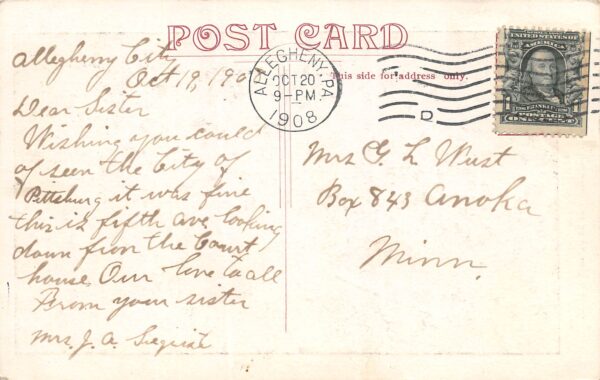 POST CARD
This side for address only.
ALLEGHENY, PA.
OCT 20
9-PM
1908
D
UNITED STATES OF
AMERICA
POSTAGE
Allegheny City
Oct 19, 190
Dear Sister
Wishing you could
of seen the City of
Pittsburg it was fine
this is fifth ave looking
down from the Court
house. Our love to all
From your sister
Mrs. J. A.
Mrs G. L. Wust
Box 843 Anoka
Minn.